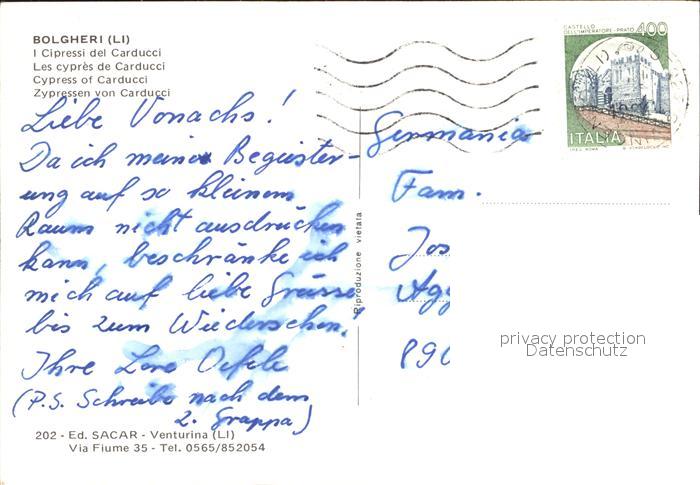 BOLGHERI (LI)
I Cipressi del Carducci
Les cyprès de Carducci
Cypress of Carducci
Zypressen von Carducci
Liebe Vonachs!
Da ich meine Begeister-
ung auf so kleinem
Raum nicht ausdrücken
kann, beschränke ich
mich auf liebe Grüsse
bis zum Wiedersehen!
Ihre Lore Oefele
(P.S. Schreibe nach dem
2. Grappa)
202 - Ed. SACAR - Venturina (LI)
Via Fiume 35 - Tel. 0565/852054
Riproduzione vietata
CASTELLO
DELL'IMPERATORE - PRATO
400
ITALIA
Germania
Fam.
Jos
Agg
890
privacy protection
Datenschutz